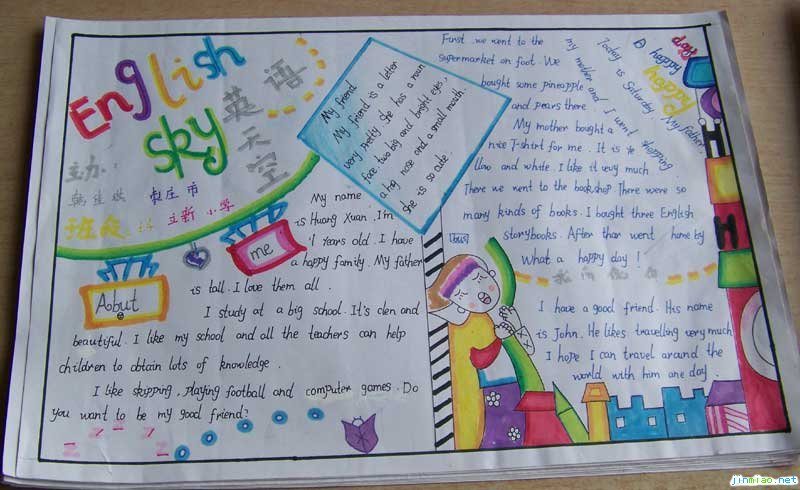 English
sky
英语
天空
主办:
枣庄市
立新小学
班级
Aobut
me
My friend
My friend is a letter
very pretty. She has a roun
face two big and bright eyes,
a big nose and a small mouth.
She is so cute.
My name
is Huang Xuan. I'm
11 Years old. I have
a happy family. My father
is tall. I love them all.
I study at a big school. It's clen and
beautiful. I like my school and all the teachers can help
children to obtain lots of knowledge.
I like skipping, playing football and computer games. Do
you want to be my good friend?
A happy
day
happy
Today is Saturday. My father
my mother and I went shopping.
First we went to the
supermarket on foot. We
bought some pineapple
and pears there
My mother bought a
nice T-shirt for me. It is ye
llao and white. I like it veuy much.
There we went to the bookshop. There were so
many kinds of books. I bought three English
storybooks. After than went home by
What a happy day!
I have a good friend. His name
is John. He likes travelling very much
I hope I can travel around the
world with him one day.
jinmiao.net